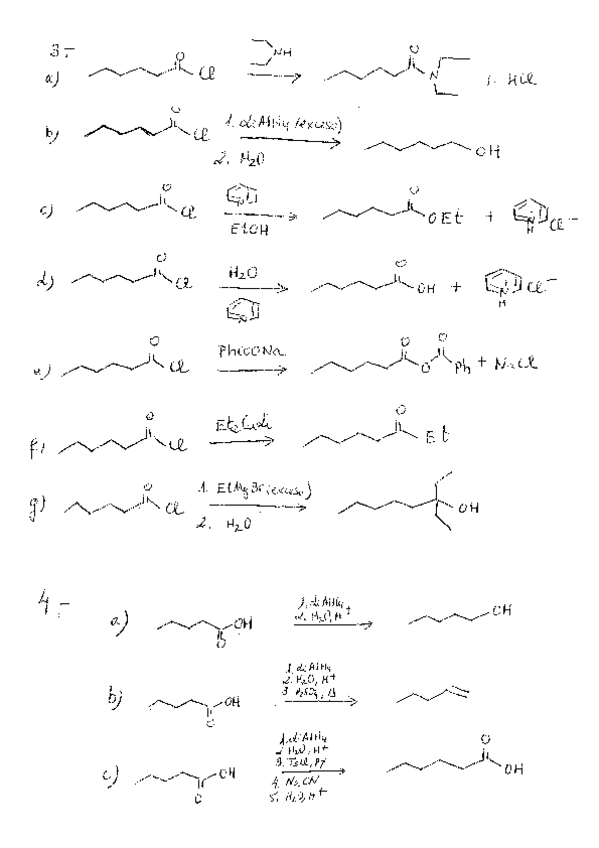 3.-
a) O Cl NH O N HCl
b) O Cl 1. LiAlH4 (exceso) 2. H2O OH
c) O Cl N EtOH O OEt + N H Cl-
d) O Cl H2O N O OH + N H Cl-
e) O Cl PhCOONa O O O Ph + NaCl
f) O Cl Et2CuLi O Et
g) O Cl 1. EtMgBr (exceso) 2. H2O OH
4.-
a) OH O 1. LiAlH4 2. H2O, H+ OH
b) OH O 1. LiAlH4 2. H2O, H+ 3. H2SO4
c) OH O 1. LiAlH4 2. H2O, H+ 3. TsCl, Py 4. NaCN 5. H2O, H+ O OH